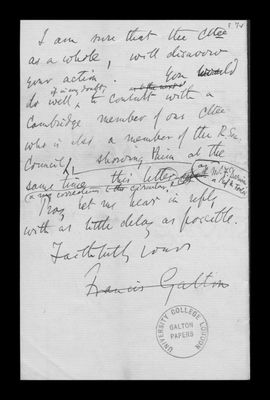 I am sure that the Cttee
as a whole, will disavow
your action. You would
do well, to consult with a
Cambridge member of our Cttee
who is also a member of the R. Soc
Council, showing them at the
same time this letter
Pray let me hear in reply
with as little delay as possible.
Faithfully yours
Francis Galton
UNIVERSITY COLLEGE LONDON
GALTON
PAPERS